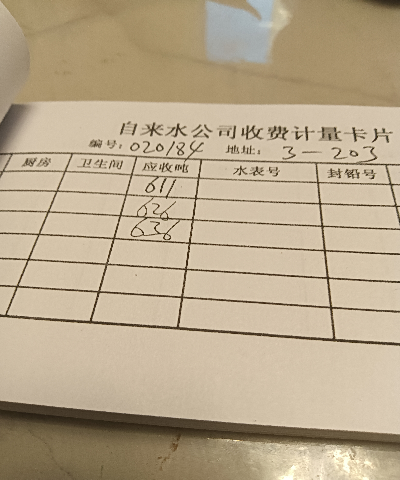 自来水公司收费计量卡片
编号: 020184 地址: 3-203
厨房 卫生间 应收吨 水表号 封铅号
611
626
636